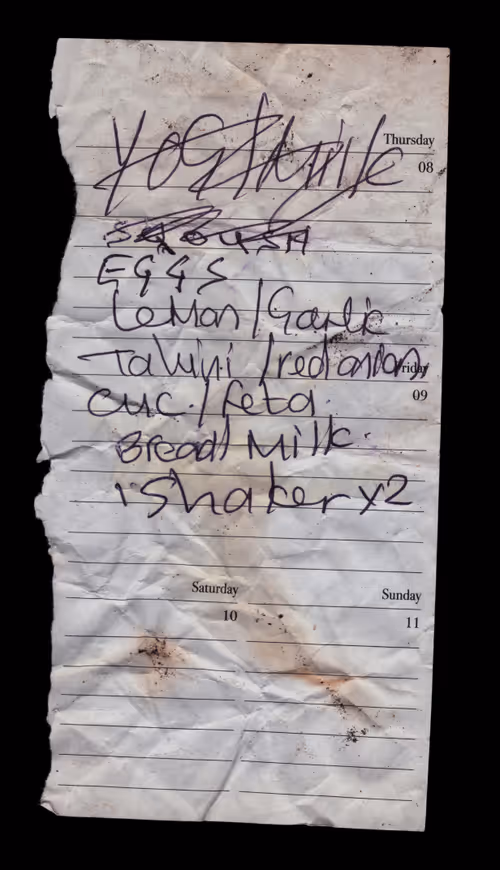 YOG/Milk
Thursday
08
SQUASH
EGGS
Lemon/Garlic
Tahini/red onion
Friday
09
cuc./feta
Bread/Milk.
Shaker x2
Saturday
Sunday
10
11